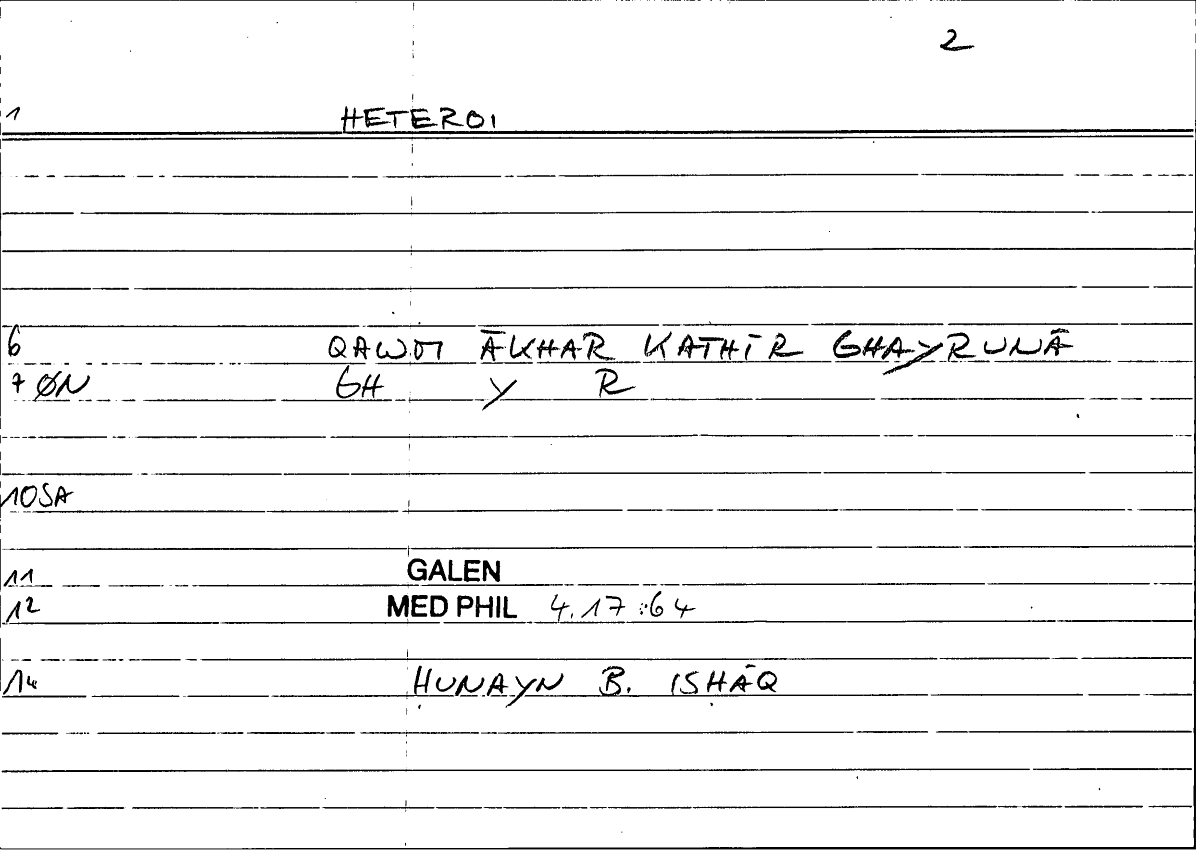 2
1 HETEROI
6 QAWM ĀKHAR KATHĪR GHAYRUNĀ
7 ØN GH Y R
10SA
11 GALEN
12 MED PHIL 4.17:64
14 ḤUNAYN B. ISḤĀQ